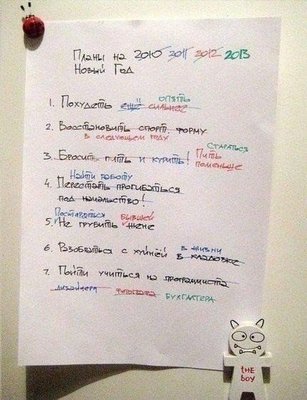 Планы на 2010 2011 2012 2013
Новый Год
опять
1. Похудеть ещё сильнее
2. Восстановить спорт. форму
в следующем году
стараться
3. Бросить пить и курить! Пить поменьше
Найти работу
4. Перестать прогибаться
под начальство!
Постараться бывшей
5. Не грубить жене
в жизни
6. Разобраться с хуйнёй в кладовке
7. Пойти учиться на программиста
дизайнера фотографа бухгалтера
the
boy